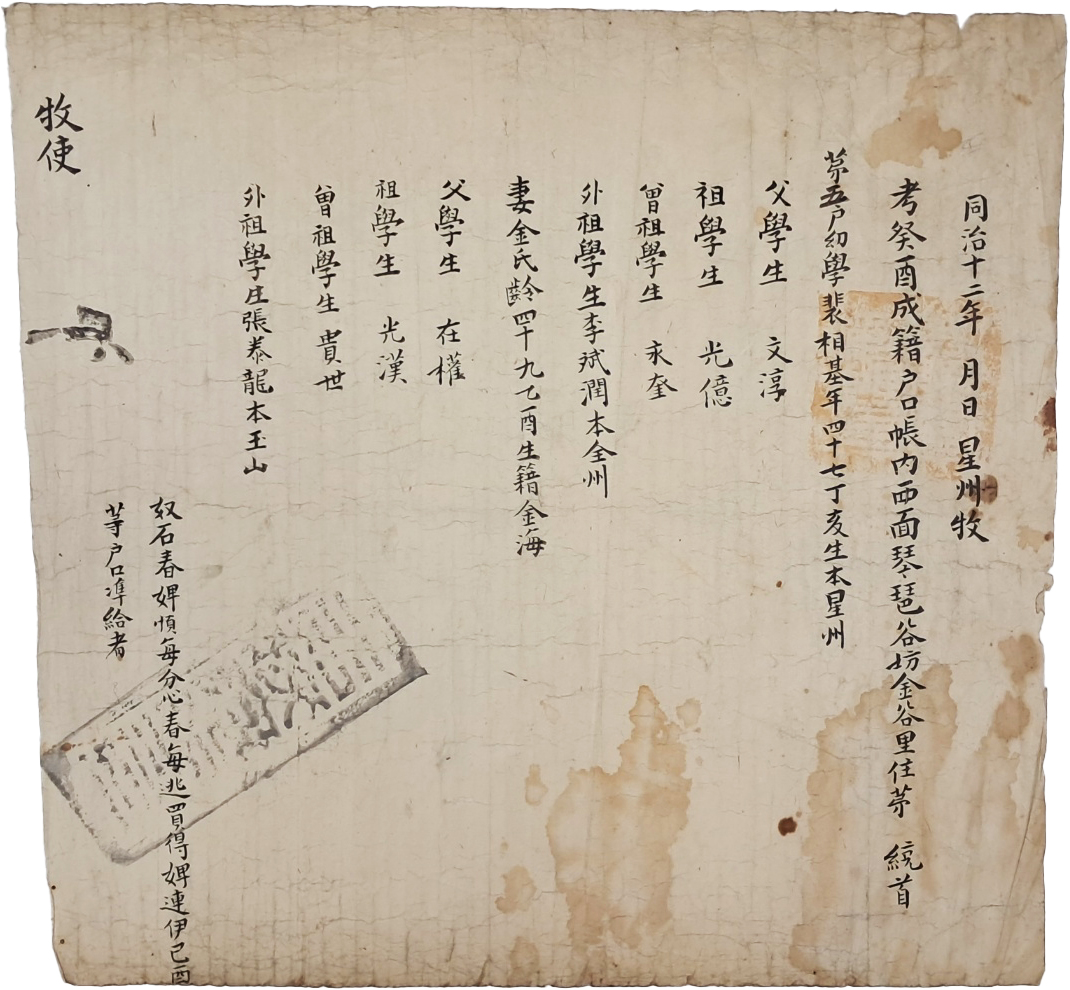 同治十二年 月日 星州牧
考癸酉成籍户口帳内西面琴琶谷坊金谷里住苐 統首
苐五户幼學裴相基年四十七丁亥生本星州
父學生 文淳
祖學生 光億
曾祖學生 永奎
外祖學生李斌潤本全州
妻金氏齡四十九乙酉生籍金海
父學生 在權
祖學生 光漢
曾祖學生 貴世
外祖學生張泰龍本玉山
奴石春婢順每分心春每逃買得婢連伊己酉
等户口準給者
牧使